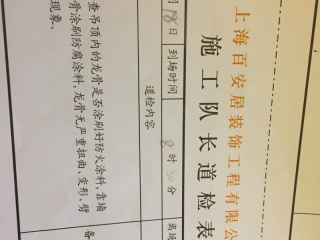 上海百安居装饰工程有限公
施工队长道检表
月18日 到场时间 8时30分 离场
道检内容 备
查吊顶内的龙骨是否涂刷好防火涂料,靠墙
骨涂刷防腐涂料,龙骨无严重扭曲、变形、劈
现象。